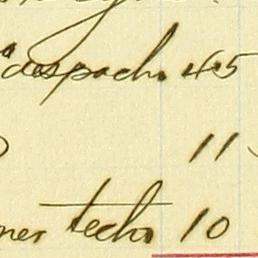 despacho 45
11
ner techo 10